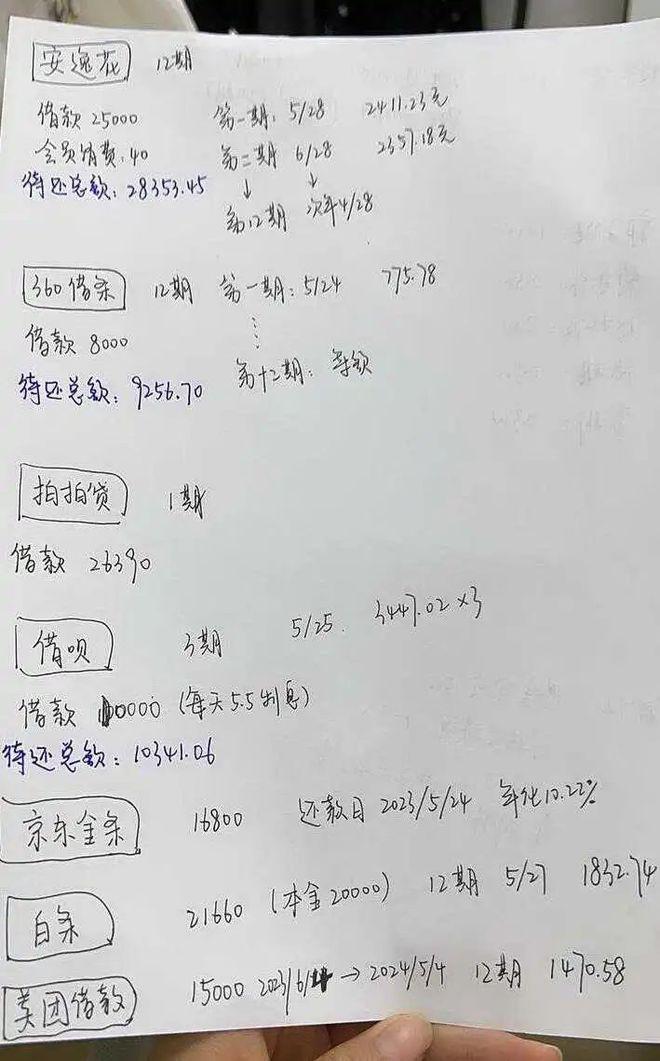 安逸花 12期
借款 25000 第一期: 5/28 2411.23元
会员消费:40 第二期 6/28 2357.18元
待还总额: 28353.45 ↓ ↓
第12期 次年4/28
360借条 12期 第一期: 5/24 775.78
借款 8000
待还总额: 9256.70 第十二期: 等额
拍拍贷 1期
借款 26390
借呗 3期 5/25. 3447.02×3
借款 10000 (每天5.5利息)
待还总额: 10341.06
京东金条 16800 还款日 2023/5/24 年化10.22%
白条 21660 (本金20000) 12期 5/27 1832.74
美团借款 15000 2023/6/4 → 2024/5/4 12期 1470.58